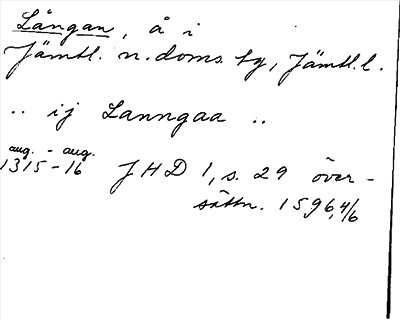 Långan, å i
Jämtl. n. doms. tg, Jämtl. l.
.. ij Lanngaa ..
aug. - aug.
1315-16 JHD 1, s. 29 över-
sättn. 1596, 4/6